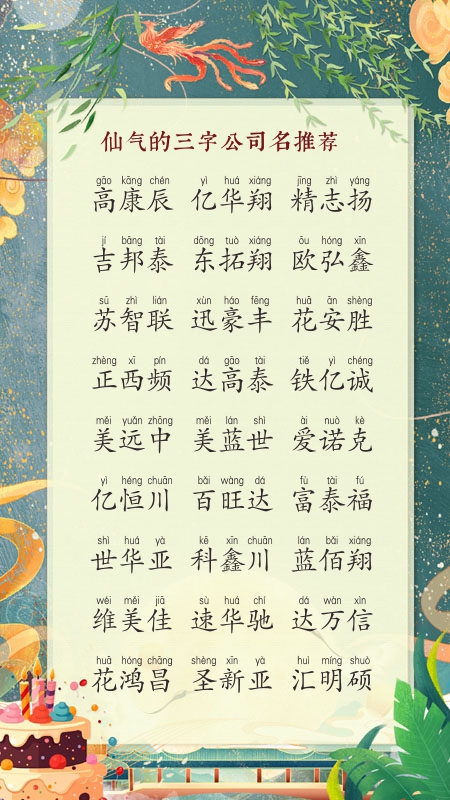 仙气的三字公司名推荐
gāo kāng chén yì huá xiáng jīng zhì yáng
高康辰 亿华翔 精志扬
jí bāng tài dōng tuò xiáng ōu hóng xīn
吉邦泰 东拓翔 欧弘鑫
sū zhì lián xùn háo fēng huā ān shèng
苏智联 迅豪丰 花安胜
zhèng xī pín dá gāo tài tiě yì chéng
正西频 达高泰 铁亿诚
měi yuǎn zhōng měi lán shì ài nuò kè
美远中 美蓝世 爱诺克
yì héng chuān bǎi wàng dá fù tài fú
亿恒川 百旺达 富泰福
shì huá yà kē xīn chuān lán bǎi xiáng
世华亚 科鑫川 蓝佰翔
wéi měi jiā sù huá chí dá wàn xìn
维美佳 速华驰 达万信
huā hóng chāng shèng xīn yà huì míng shuò
花鸿昌 圣新亚 汇明硕